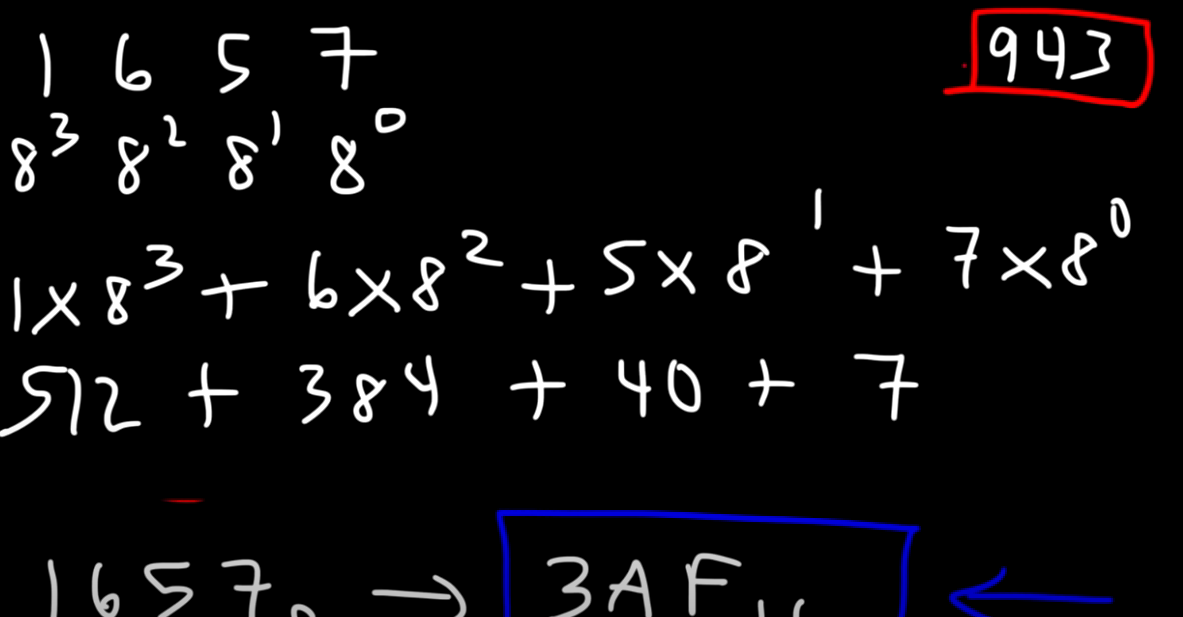 1 6 5 7
943
8³ 8² 8¹ 8⁰
1 × 8³ + 6 × 8² + 5 × 8¹ + 7 × 8⁰
512 + 384 + 40 + 7
1657₈ → 3AF₁₆